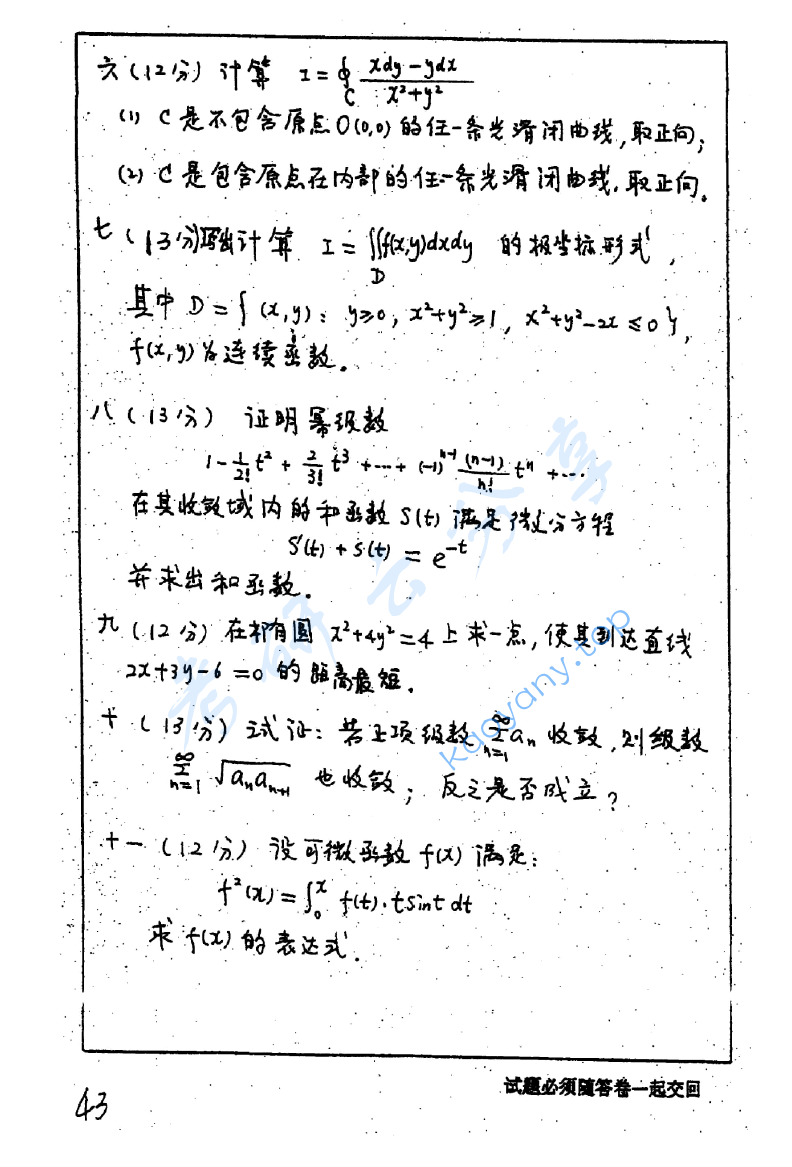 六(12分) 计算 I=∮_C (xdy-ydx)/(x²+y²)
(1) C是不包含原点O(0,0)的任一条光滑闭曲线,取正向;
(2) C是包含原点在内部的任一条光滑闭曲线,取正向。
七(13分)写出计算 I=∬_D f(x,y)dxdy 的极坐标形式,
其中 D={(x,y): y≥0, x²+y²≥1, x²+y²-2x≤0},
f(x,y)为连续函数。
八(13分) 证明幂级数
1-1/2! t²+2/3! t³+…+(-1)^{n-1} (n-1)/n! t^n+…
在其收敛域内的和函数S(t)满足微分方程
S'(t)+S(t)=e^{-t}
并求出和函数。
九(12分)在椭圆 x²+4y²=4上求一点,使其到达直线
2x+3y-6=0的距离最短.
十(13分)试证:若正项级数 ∑_{n=1}^∞ a_n 收敛,则级数
∑_{n=1}^∞ √(a_n a_{n+1}) 也收敛; 反之是否成立?
十一(12分)设可微函数f(x)满足:
f²(x)=∫_0^x f(t)·t sint dt
求f(x)的表达式.
试题必须随答卷一起交回
43
考研云分享
kaoyany.top